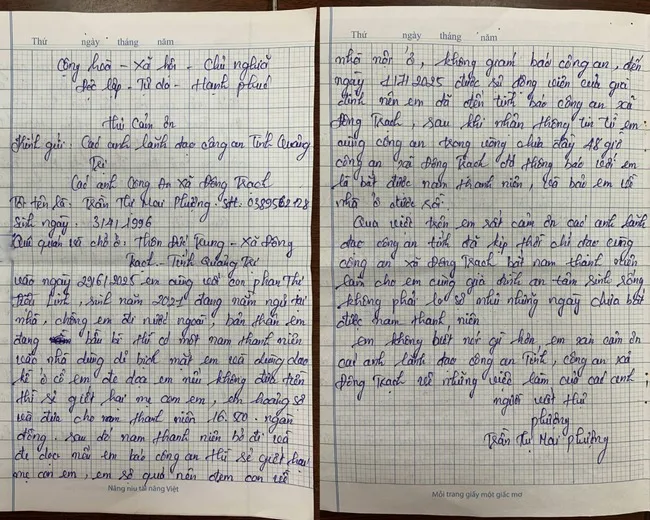 Thứ ngày tháng năm
Cộng hoà - Xã hội - Chủ nghĩa
Độc lập - Tự do - Hạnh phúc
Thư Cảm ơn
Kính gửi: Các anh lãnh đạo công an Tỉnh Quảng
Trị
Các anh Công An Xã Đông Trạch
Tôi tên là: Trần Thị Mai Phương. SĐT:
Sinh ngày: 1996
Quê quán và chỗ ở: Thôn Đức Trung - Xã Đông
Trạch - Tỉnh Quảng Trị
vào ngày 2025 em cùng với con Phan Thị
Linh, sinh năm 2021 đang nằm ngủ tại
nhà, chồng em đi nước ngoài, bản thân em
đang bầu bí thì có một nam thanh niên
vào nhà dùng để bịch mặt em và dùng dao
kề ở cổ em, đe doạ em nếu không đưa tiền
thì sẽ giết hai mẹ con em, em hoảng sợ
và đưa cho nam thanh niên ngàn
đồng. sau đó nam thanh niên bỏ đi và
đe doạ nếu em báo công an thì sẽ giết hai
mẹ con em, em sợ quá nên đem con về
Nâng niu tài năng Việt
Thứ ngày tháng năm
nhà nội ở, không giám báo công an, đến
ngày 2025 được sự động viên của gia
đình nên em đã đến trình báo công an xã
Đông Trạch, sau khi nhận thông tin từ em
cùng công an trong vòng chưa đầy 48 giờ
công an xã Đông Trạch đã thông báo với em
là bắt được nam thanh niên, và bảo em về
nhà ở được rồi.
Qua việc trên em rất cảm ơn các anh lãnh
đạo công an tỉnh đã kịp thời chỉ đạo cùng
công an xã Đông Trạch bắt nam thanh niên
làm cho em cùng gia đình an tâm sinh sống
không phải lo sợ như những ngày chưa bắt
được nam thanh niên
em không biết nói gì hơn, em xin cảm ơn
các anh lãnh đạo công an Tỉnh, công an xã
Đông Trạch về những việc làm của các anh;
người viết thư
Phương
Trần Thị Mai Phương
Mỗi trang giấy một giấc mơ